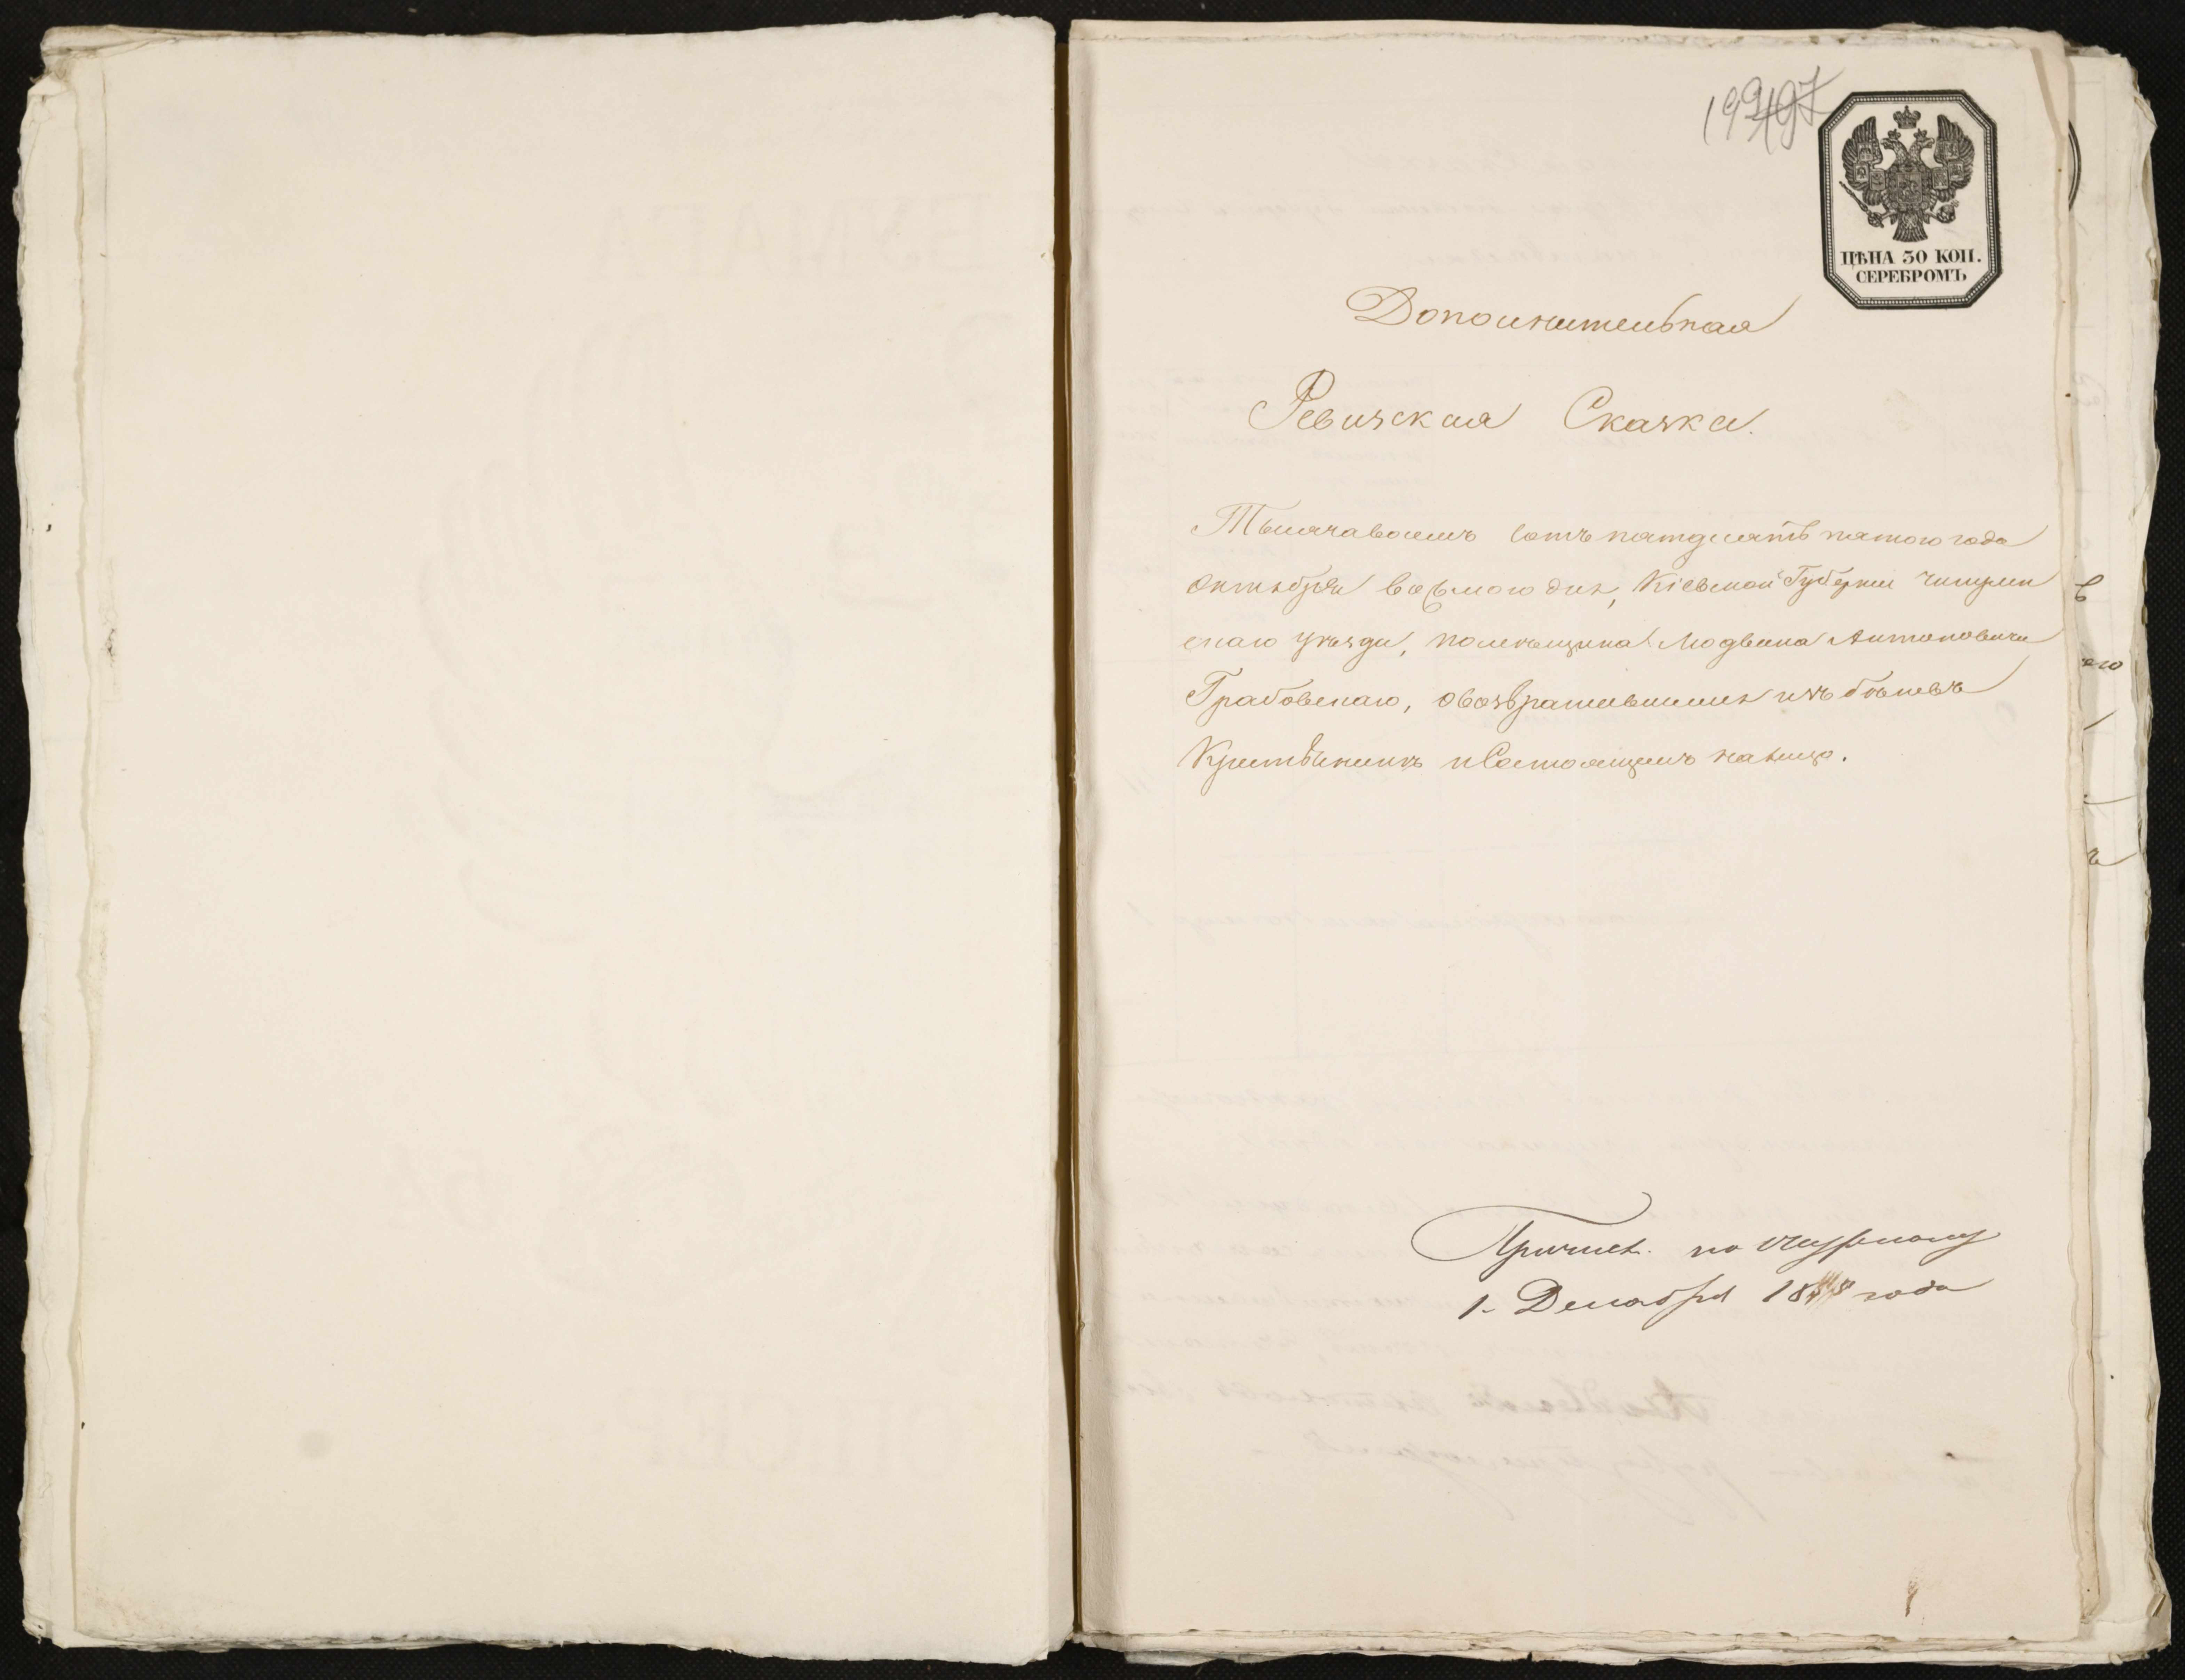 197
ЦѢНА 30 КОП.
СЕРЕБРОМЪ
Дополнительная
Ревизская Сказка.
Тысячавосемъ сотъ пятдесятъ пятого года
Октября восьмого дня, Кіевской Губерніи Чигирин
скаго уѣзда, помѣщика Людвика Антоновича
Грабовскаго, овозвратившимся изъ бѣговъ
Крестьянинѣ иСостоящемъ налицо.
по
1. Декабря года